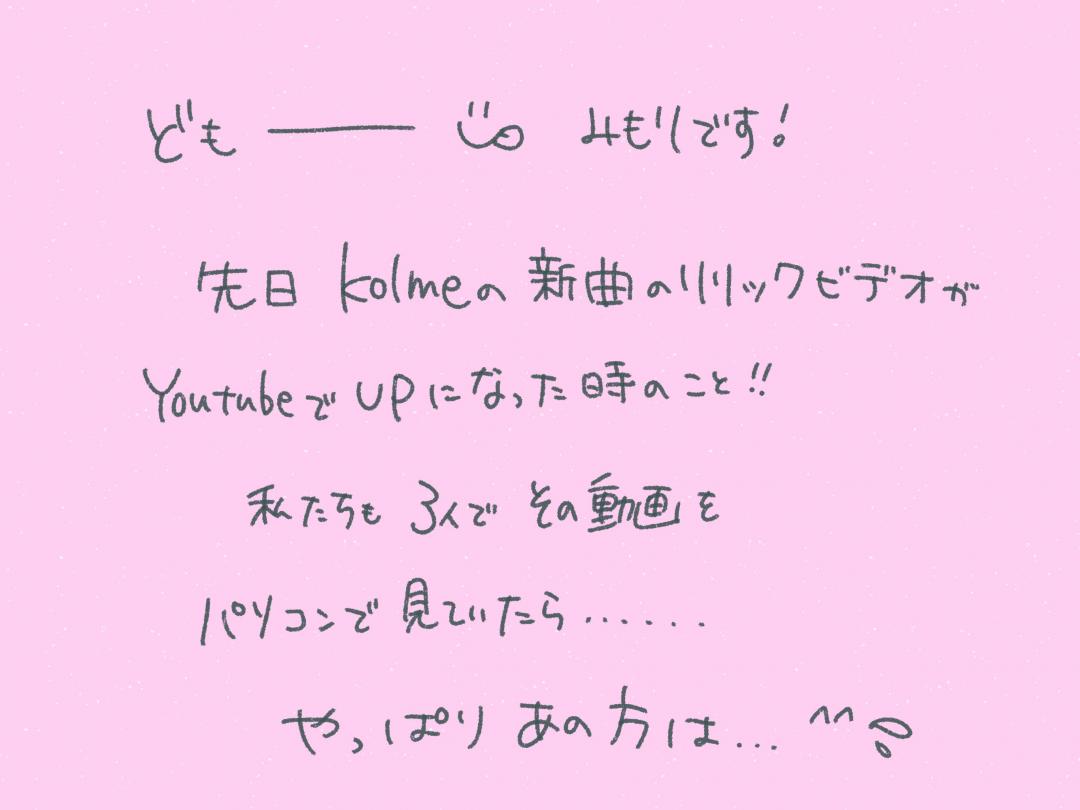 ども―― みもりです!
先日 kolmeの 新曲のリリックビデオが
Youtubeで UPになった時のこと!!
私たちも 3人で その動画を
パソコンで 見ていたら......
やっぱり あの方は...